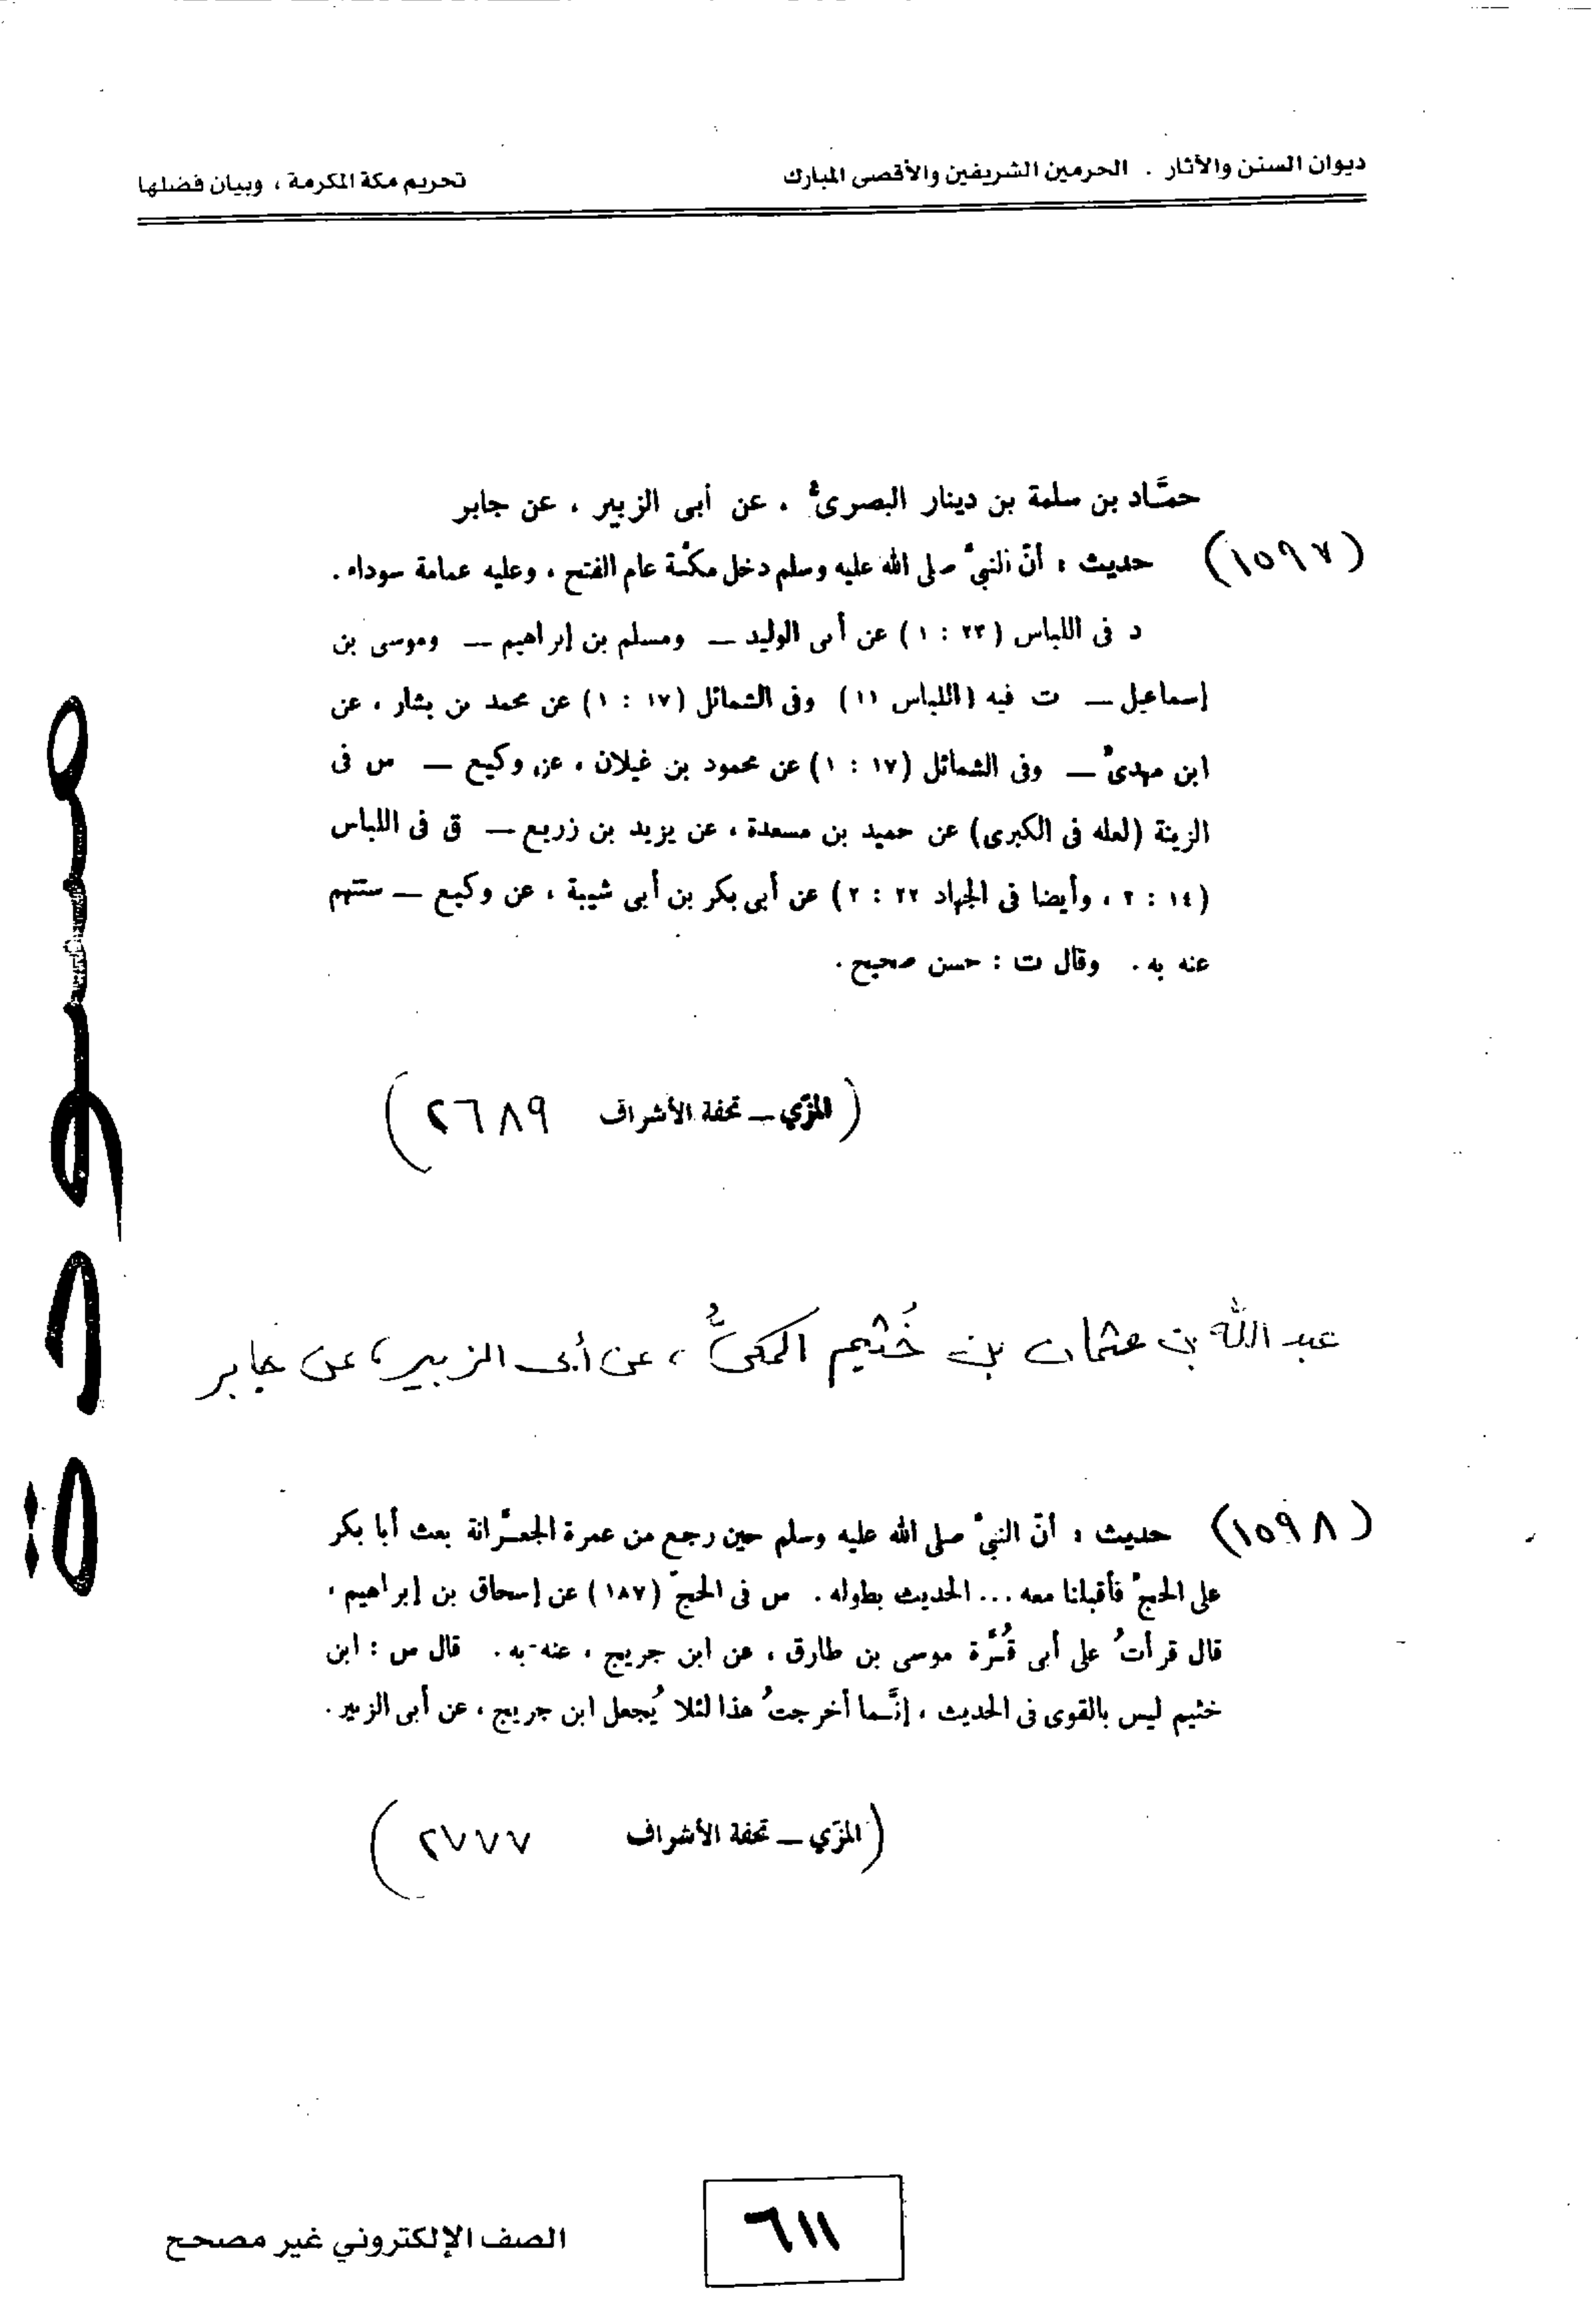 ديوان السنن والآثار . الحرمين الشريفين والأقصى المبارك تحريم مكة المكرمة ، وبيان فضلها
حمَّاد بن سلمة بن دينار البصرىّ ، عن أبى الزبير ، عن جابر
(١٥٩٧) حديث : أنّ النبيّ صلى الله عليه وسلم دخل مكّة عام الفتح ، وعليه عمامة سوداء .
د فى اللباس (٢٣ : ١) عن أبى الوليد — ومسلم بن إبراهيم — وموسى بن
إسماعيل — ت فيه (اللباس ١١) وفى الشمائل (١٧ : ١) عن محمد بن بشار ، عن
ابن مهدىّ — وفى الشمائل (١٧ : ١) عن محمود بن غيلان ، عن وكيع — س فى
الزينة (لعله فى الكبرى) عن حميد بن مسعدة ، عن يزيد بن زريع — ق فى اللباس
(١٤ : ٢ ، وأيضا فى الجهاد ٢٢ : ٢) عن أبى بكر بن أبى شيبة ، عن وكيع — ستتهم
عنه به . وقال ت : حسن صحيح .
(المزّي — تحفة الأشراف ٢٦٨٩)
عبد الله بن عثمان بن خُثيم المكىُّ ، عن أبى الزبير ، عن جابر
(١٥٩٨) حديث : أنّ النبيّ صلى الله عليه وسلم حين رجع من عمرة الجعرّانة بعث أبا بكر
على الحجّ فأقبلنا معه ... الحديث بطوله . س فى الحجّ (١٨٧) عن إسحاق بن إبراهيم ،
قال قرأتُ على أبى قُرَّة موسى بن طارق ، عن ابن جريج ، عنه به . قال س : ابن
خثيم ليس بالقوى فى الحديث ، إنَّما أخرجتُ هذا لئلا يُجعل ابن جريج ، عن أبى الزبير .
(المزّي — تحفة الأشراف ٢٧٧٧)
مسودة
٦١١
الصف الإلكتروني غير مصحح